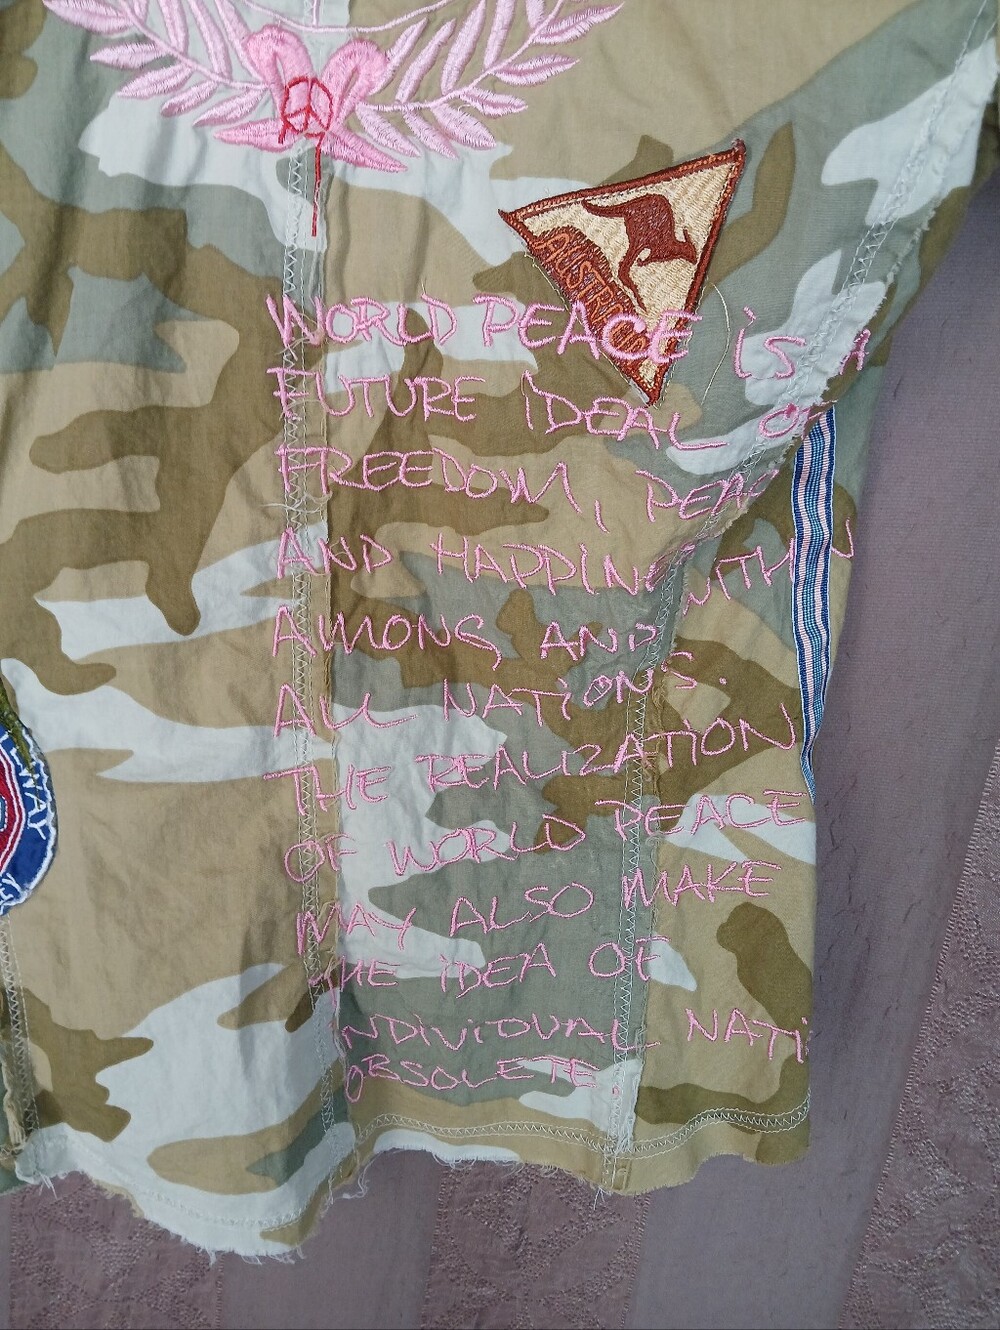 AUSTRALIA
WORLD PEACE iS A
FUTURE iDEAL OF
FREEDOM, PEAC
AND HAPPiN WITHiN
AMONG AND
ALL NATiONS.
THE REALIZATiON
OF WORLD PEACE
MAY ALSO MAKE
THE iDEA OF
iNDiViDUAL NATi
OBSOLETE.
WAY
EY